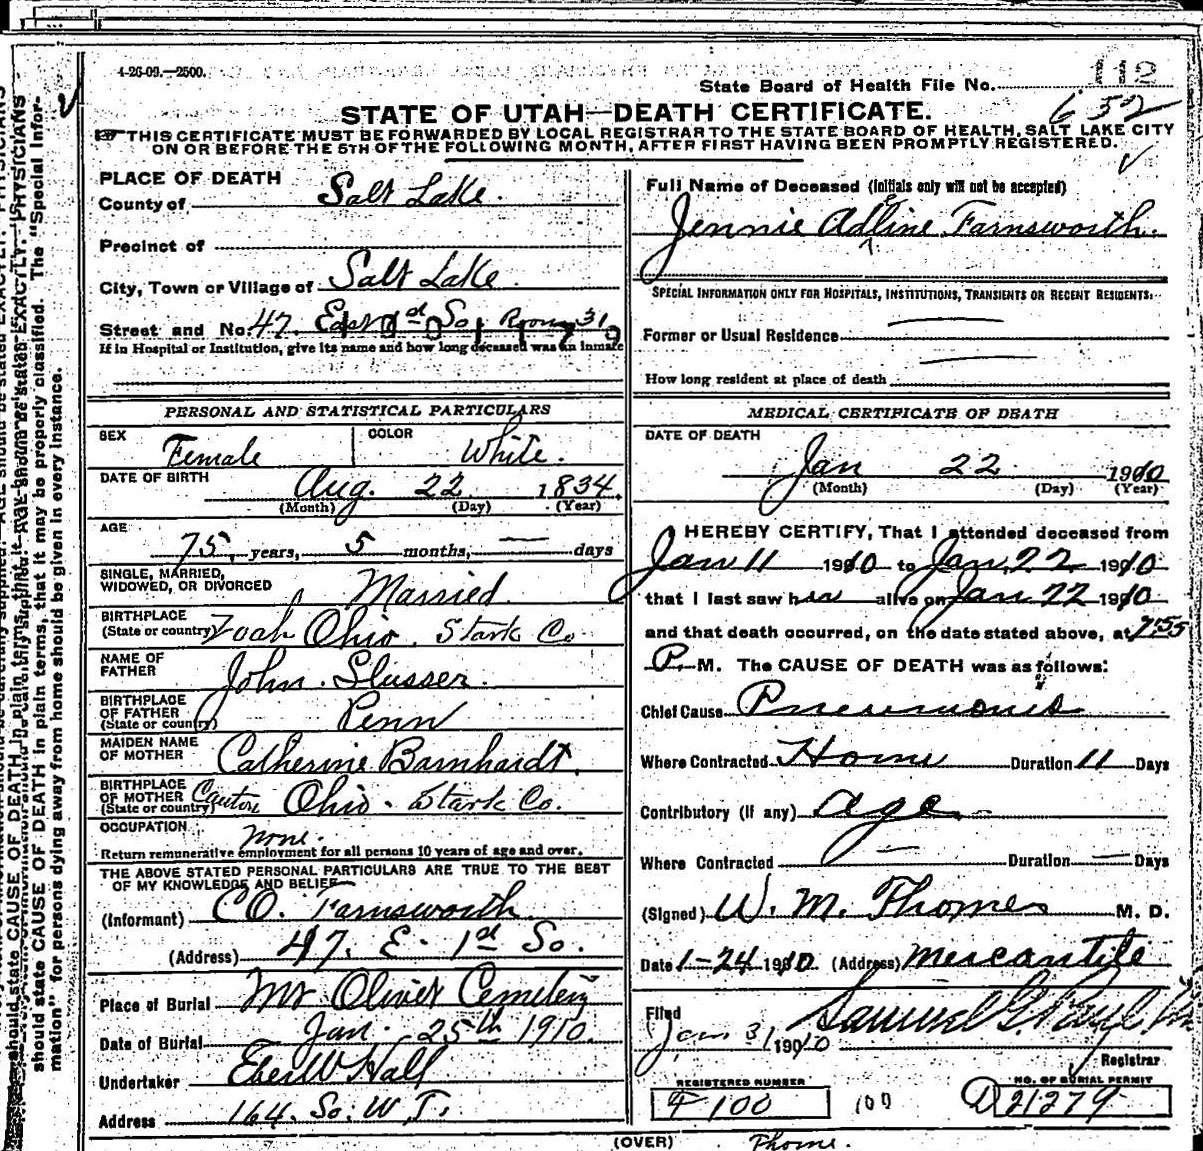 4-26-09.—2500.
State Board of Health File No. 112
652
STATE OF UTAH—DEATH CERTIFICATE.
THIS CERTIFICATE MUST BE FORWARDED BY LOCAL REGISTRAR TO THE STATE BOARD OF HEALTH, SALT LAKE CITY
ON OR BEFORE THE 5TH OF THE FOLLOWING MONTH, AFTER FIRST HAVING BEEN PROMPTLY REGISTERED.
PLACE OF DEATH
County of Salt Lake.
Precinct of
City, Town or Village of Salt Lake
Street and No. 47. East 1st So. Room 319
If in Hospital or Institution, give its name and how long deceased was an inmate
PERSONAL AND STATISTICAL PARTICULARS
SEX Female COLOR White.
DATE OF BIRTH Aug. 22 1834.
(Month) (Day) (Year)
AGE 75, years, 5 months, — days
SINGLE, MARRIED,
WIDOWED, OR DIVORCED Married.
BIRTHPLACE
(State or country) Ohio. Stark Co
NAME OF
FATHER John Slusser.
BIRTHPLACE
OF FATHER
(State or country) Penn
MAIDEN NAME
OF MOTHER Catherine Barnhardt.
BIRTHPLACE
OF MOTHER
(State or country) Canton Ohio. Stark Co.
OCCUPATION none.
Return remunerative employment for all persons 10 years of age and over.
THE ABOVE STATED PERSONAL PARTICULARS ARE TRUE TO THE BEST
OF MY KNOWLEDGE AND BELIEF
(Informant) C.O. Farnsworth
(Address) 47. E. 1st So.
Place of Burial Mt Olivet Cemetery
Date of Burial Jan. 25th 1910.
Undertaker Eber W Hall
Address 164. So. W T.
Full Name of Deceased (Initials only will not be accepted)
Jennie Adeline Farnsworth.
SPECIAL INFORMATION ONLY FOR HOSPITALS, INSTITUTIONS, TRANSIENTS OR RECENT RESIDENTS:
Former or Usual Residence —
How long resident at place of death —
MEDICAL CERTIFICATE OF DEATH
DATE OF DEATH
Jan 22 1910
(Month) (Day) (Year)
I HEREBY CERTIFY, That I attended deceased from
Jan 11 1910 to Jan. 22 1910
that I last saw her alive on Jan 22 1910
and that death occurred, on the date stated above, at 7:55
P. M. The CAUSE OF DEATH was as follows:
Chief Cause Pneumonia
Where Contracted Home Duration 11 Days
Contributory (if any) age
Where Contracted — Duration — Days
(Signed) W. M. Thomes M. D.
Date 1-24 1910 (Address) Mercantile
Filed
Jan 31 1910 Samuel G. Paul
Registrar
REGISTERED NUMBER
100 100
NO. OF BURIAL PERMIT
D 21279
(OVER)
should state CAUSE OF DEATH in plain terms, that it may be properly classified. The "Special Infor-
mation" for persons dying away from home should be given in every instance.